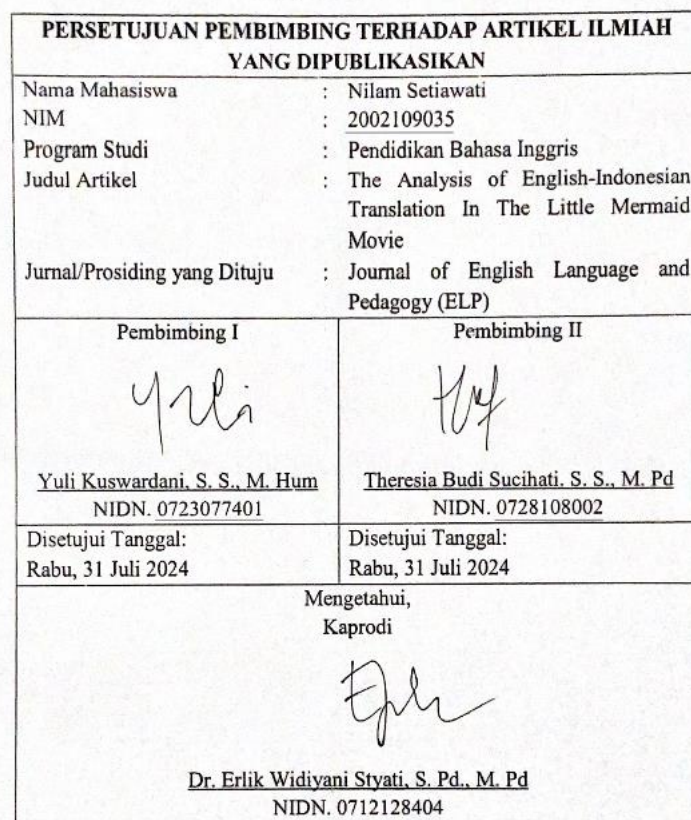 PERSETUJUAN PEMBIMBING TERHADAP ARTIKEL ILMIAH
YANG DIPUBLIKASIKAN
Nama Mahasiswa : Nilam Setiawati
NIM : 2002109035
Program Studi : Pendidikan Bahasa Inggris
Judul Artikel : The Analysis of English-Indonesian
Translation In The Little Mermaid
Movie
Jurnal/Prosiding yang Dituju : Journal of English Language and
Pedagogy (ELP)
Pembimbing I
Yuli Kuswardani, S. S., M. Hum
NIDN. 0723077401
Disetujui Tanggal:
Rabu, 31 Juli 2024
Pembimbing II
Theresia Budi Sucihati. S. S., M. Pd
NIDN. 0728108002
Disetujui Tanggal:
Rabu, 31 Juli 2024
Mengetahui,
Kaprodi
Dr. Erlik Widiyani Styati, S. Pd., M. Pd
NIDN. 0712128404